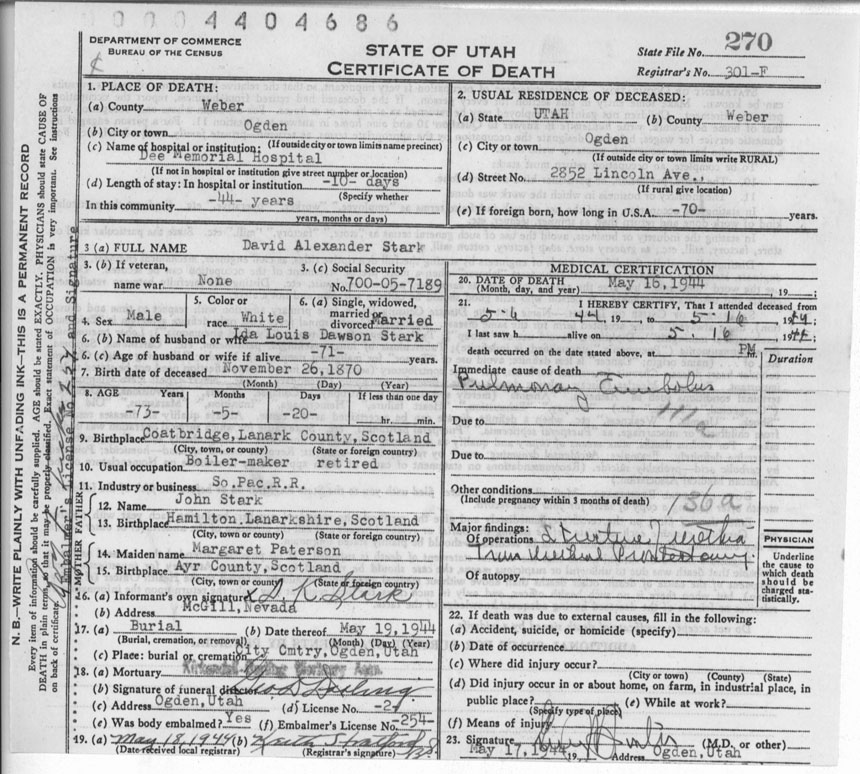 0004404686
DEPARTMENT OF COMMERCE
BUREAU OF THE CENSUS
STATE OF UTAH
CERTIFICATE OF DEATH
State File No. 270
Registrar's No. 301-F
N. B.—WRITE PLAINLY WITH UNFADING INK—THIS IS A PERMANENT RECORD
Every item of information should be carefully supplied. AGE should be stated EXACTLY. PHYSICIANS should state CAUSE OF
DEATH in plain terms, so that it may be properly classified. Exact statement of OCCUPATION is very important. See instructions
on back of certificate.
Embalmer's License No. and Signature
1. PLACE OF DEATH:
(a) County Weber
(b) City or town Ogden
(c) Name of hospital or institution: (If outside city or town limits name precinct)
Dee Memorial Hospital
(If not in hospital or institution give street number or location)
(d) Length of stay: In hospital or institution -10- days
(Specify whether
In this community -44- years
years, months or days)
2. USUAL RESIDENCE OF DECEASED:
(a) State UTAH (b) County Weber
(c) City or town Ogden
(If outside city or town limits write RURAL)
(d) Street No. 2852 Lincoln Ave.,
(If rural give location)
(e) If foreign born, how long in U.S.A. -70- years.
3 (a) FULL NAME David Alexander Stark
3. (b) If veteran,
name war None
3. (c) Social Security
No. 700-05-7189
4. Sex Male
5. Color or
race White
6. (a) Single, widowed,
married or
divorced Married
6. (b) Name of husband or wife Ida Louis Dawson Stark
6. (c) Age of husband or wife if alive -71- years.
7. Birth date of deceased November 26, 1870
(Month) (Day) (Year)
8. AGE Years Months Days If less than one day
-73- -5- -20- hr. min.
9. Birthplace Coatbridge, Lanark County, Scotland
(City, town, or county) (State or foreign country)
10. Usual occupation Boiler-maker retired
11. Industry or business So.Pac.R.R.
FATHER
12. Name John Stark
13. Birthplace Hamilton, Lanarkshire, Scotland
(City, town or county) (State or foreign country)
MOTHER
14. Maiden name Margaret Paterson
15. Birthplace Ayr County, Scotland
(City, town or county) (State or foreign country)
16. (a) Informant's own signature D. K. Stark
(b) Address McGill, Nevada
17. (a) Burial (b) Date thereof May 19, 1944
(Burial, cremation, or removal) (Month) (Day) (Year)
(c) Place: burial or cremation City Cmtry, Ogden, Utah
18. (a) Mortuary
(b) Signature of funeral director
(c) Address Ogden, Utah (d) License No. -24
(e) Was body embalmed? Yes (f) Embalmer's License No. -254-
19. (a) May 18, 1944 (b) Keith Stratford
(Date received local registrar) (Registrar's signature)
MEDICAL CERTIFICATION
20. DATE OF DEATH May 16, 1944
(Month, day, and year) 19
21. I HEREBY CERTIFY, That I attended deceased from
5-6 44 19 to 5-16 1944;
I last saw h alive on 5-16 1944
death occurred on the date stated above, at PM m.
Duration
Immediate cause of death
Pulmonary Embolus
111a
Due to
Due to
Other conditions
(Include pregnancy within 3 months of death)
136a
Major findings:
Of operations Stricture Urethra
Trans Urethral
Of autopsy
PHYSICIAN
Underline
the cause to
which death
should be
charged sta-
tistically.
22. If death was due to external causes, fill in the following:
(a) Accident, suicide, or homicide (specify)
(b) Date of occurrence
(c) Where did injury occur?
(City or town) (County) (State)
(d) Did injury occur in or about home, on farm, in industrial place, in
public place? (e) While at work?
(Specify type of place)
(f) Means of injury
23. Signature (M.D. or other)
May 17, 1944 19 Address Ogden, Utah